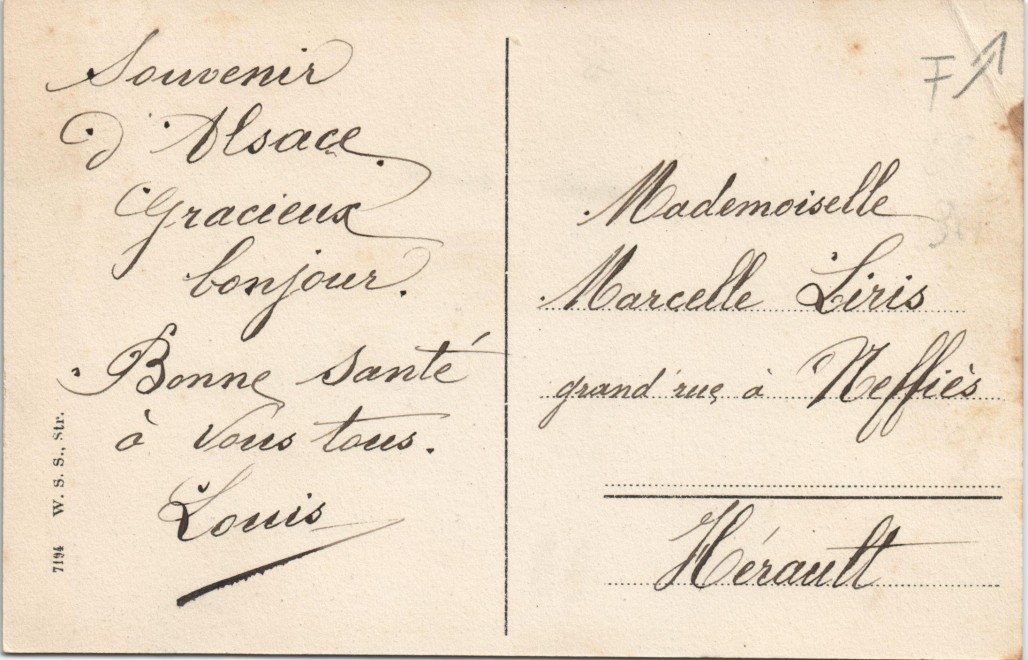 Souvenir
d'Alsace.
Gracieux
bonjour.
Bonne santé
à vous tous.
Louis
7194 W. S. S., Str.
F
Mademoiselle
Marcelle Liris
grand'rue à Neffiès
Hérault